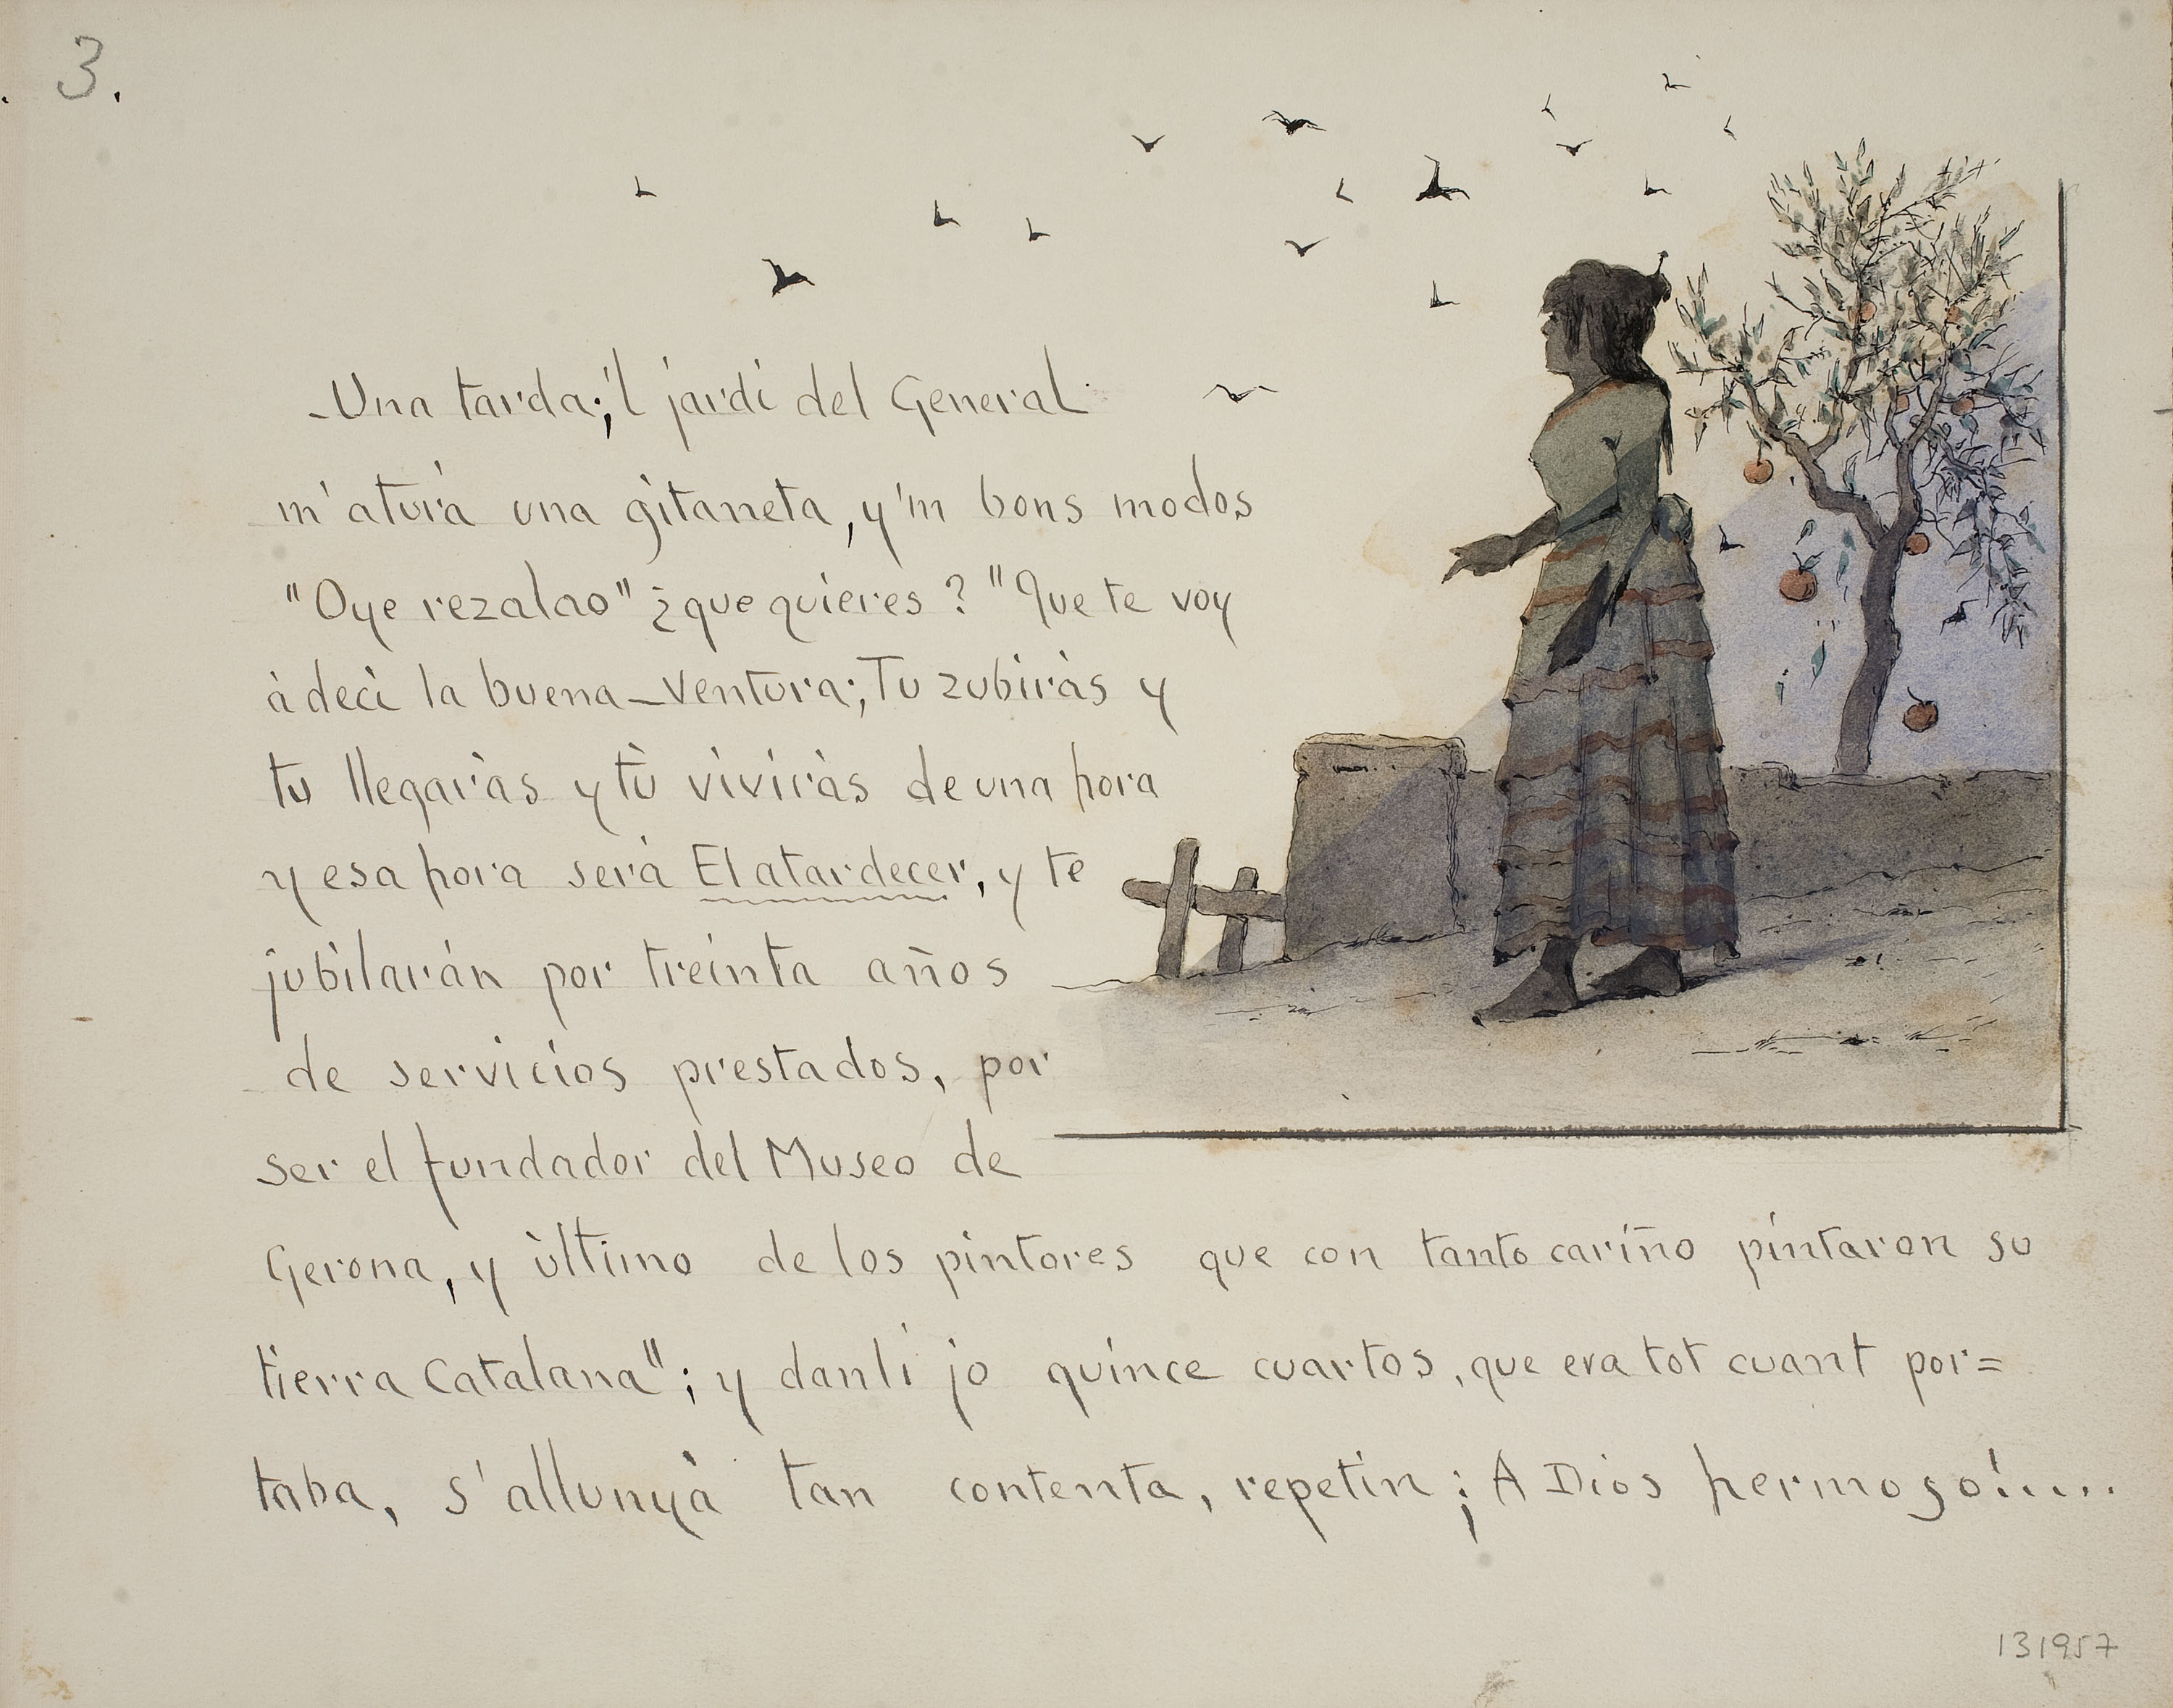 3.
-Una tarda; 'l jardi del General
m'aturà una gitaneta, y'm bons modos
"Oye rezalao" ¿que quieres? "Que te voy
à deci la buena-ventura; Tu zubiràs y
tu llegaràs y tù viviràs de una hora
y esa hora serà El atardecer, y te
jubilarán por treinta años
de servicios prestados, por
ser el fundador del Museo de
Gerona, y ùltimo de los pintores que con tanto cariño pintaron su
tierra Catalana"; y danli jo quince cuartos, que era tot cuant por=
taba, s'allunyà tan contenta, repetin ¡A Dios hermoso!....
131957